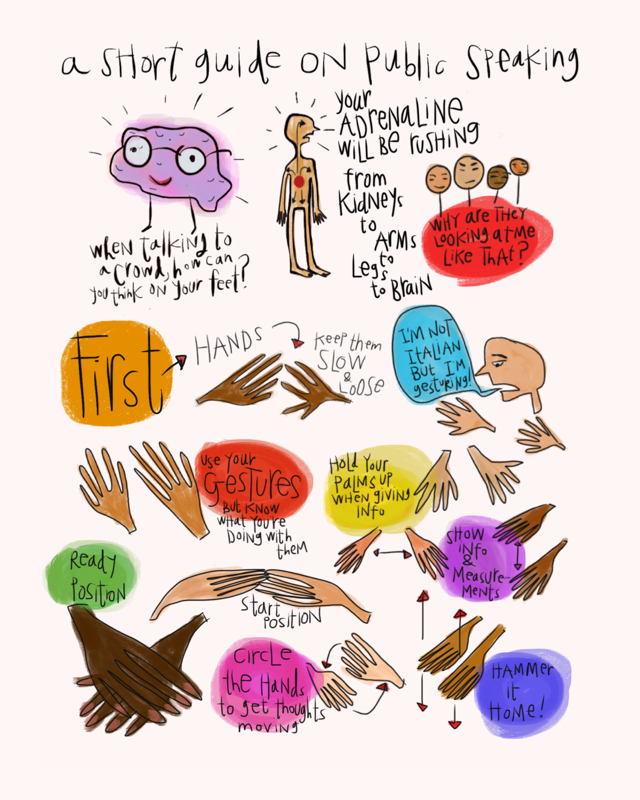 a SHort guide ON Public Speaking
when talking to
a crowd, how can
you think on your feet?
your
ADrenaLINE
WILL BE rUSHING
from
Kidneys
to
Arms
to
Legs
to BraiN
WHY are THEY
LOOKING at ME
LIKE THAT?
First
HANDS
Keep them
SLOW
&
LOOSE
I'M NOT
ITALIAN
BUT I'M
gesturing!
Use Your
GeStUReS
BUT KNOW
WHAT YOU're
DOING WITH
THEM
HOLD YOUr
PaLMS UP
WHEN GIVING
INFO
SHOW
INFO
&
Measure-
MeNts
ReaDY
POSITION
START
POSITION
Circle
the Hands
to get thoughts
moving
HAMMer
it
HOMe!